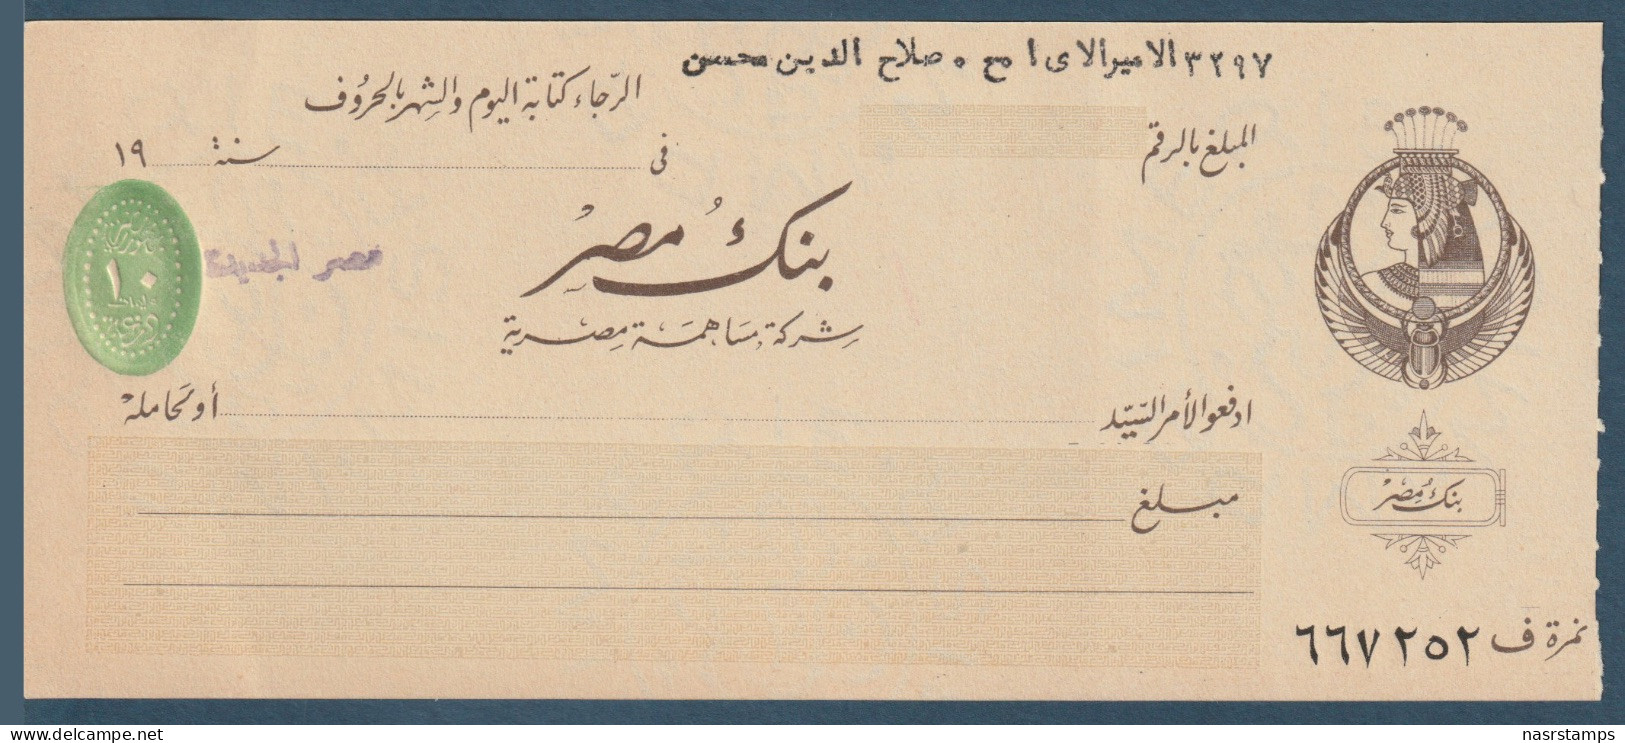 ٣٢٩٧ الاميرالاى ا٠ح ٠ صلاح الدين محسن
الرجاء كتابة اليوم والشهر بالحروف
المبلغ بالرقم
فى سنة ١٩
بنك مصر
شركة مساهمة مصرية
١٠
مصر الجديدة
ادفعوا لأمر السيد أو لحامله
مبلغ
بنك مصر
نمرة ف ٦٦٧٢٥٢
www.delcampe.net
nasrstamps